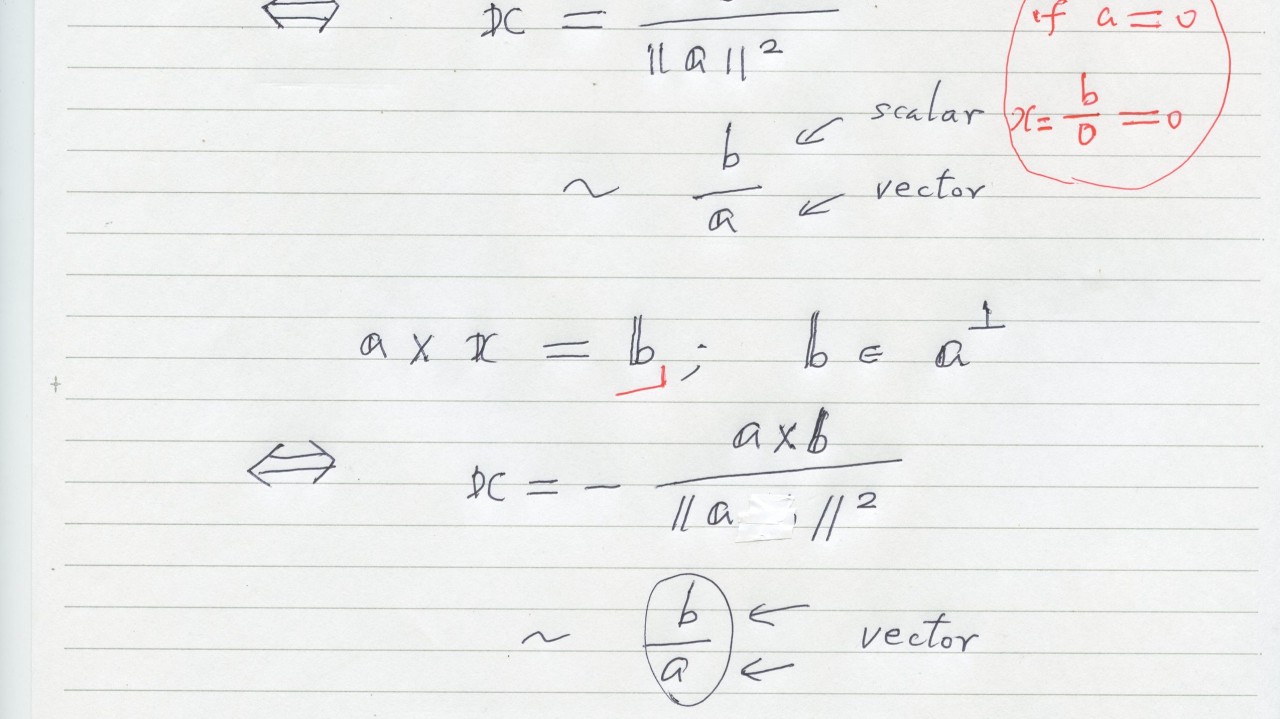 ⇔ x = ‖a‖²
if a = 0
x = b/0 = 0
~ b/a ← scalar ← vector
a × x = b ; b ∈ a^⊥
⇔ x = − a×b / ‖a‖²
~ b/a ← ← vector